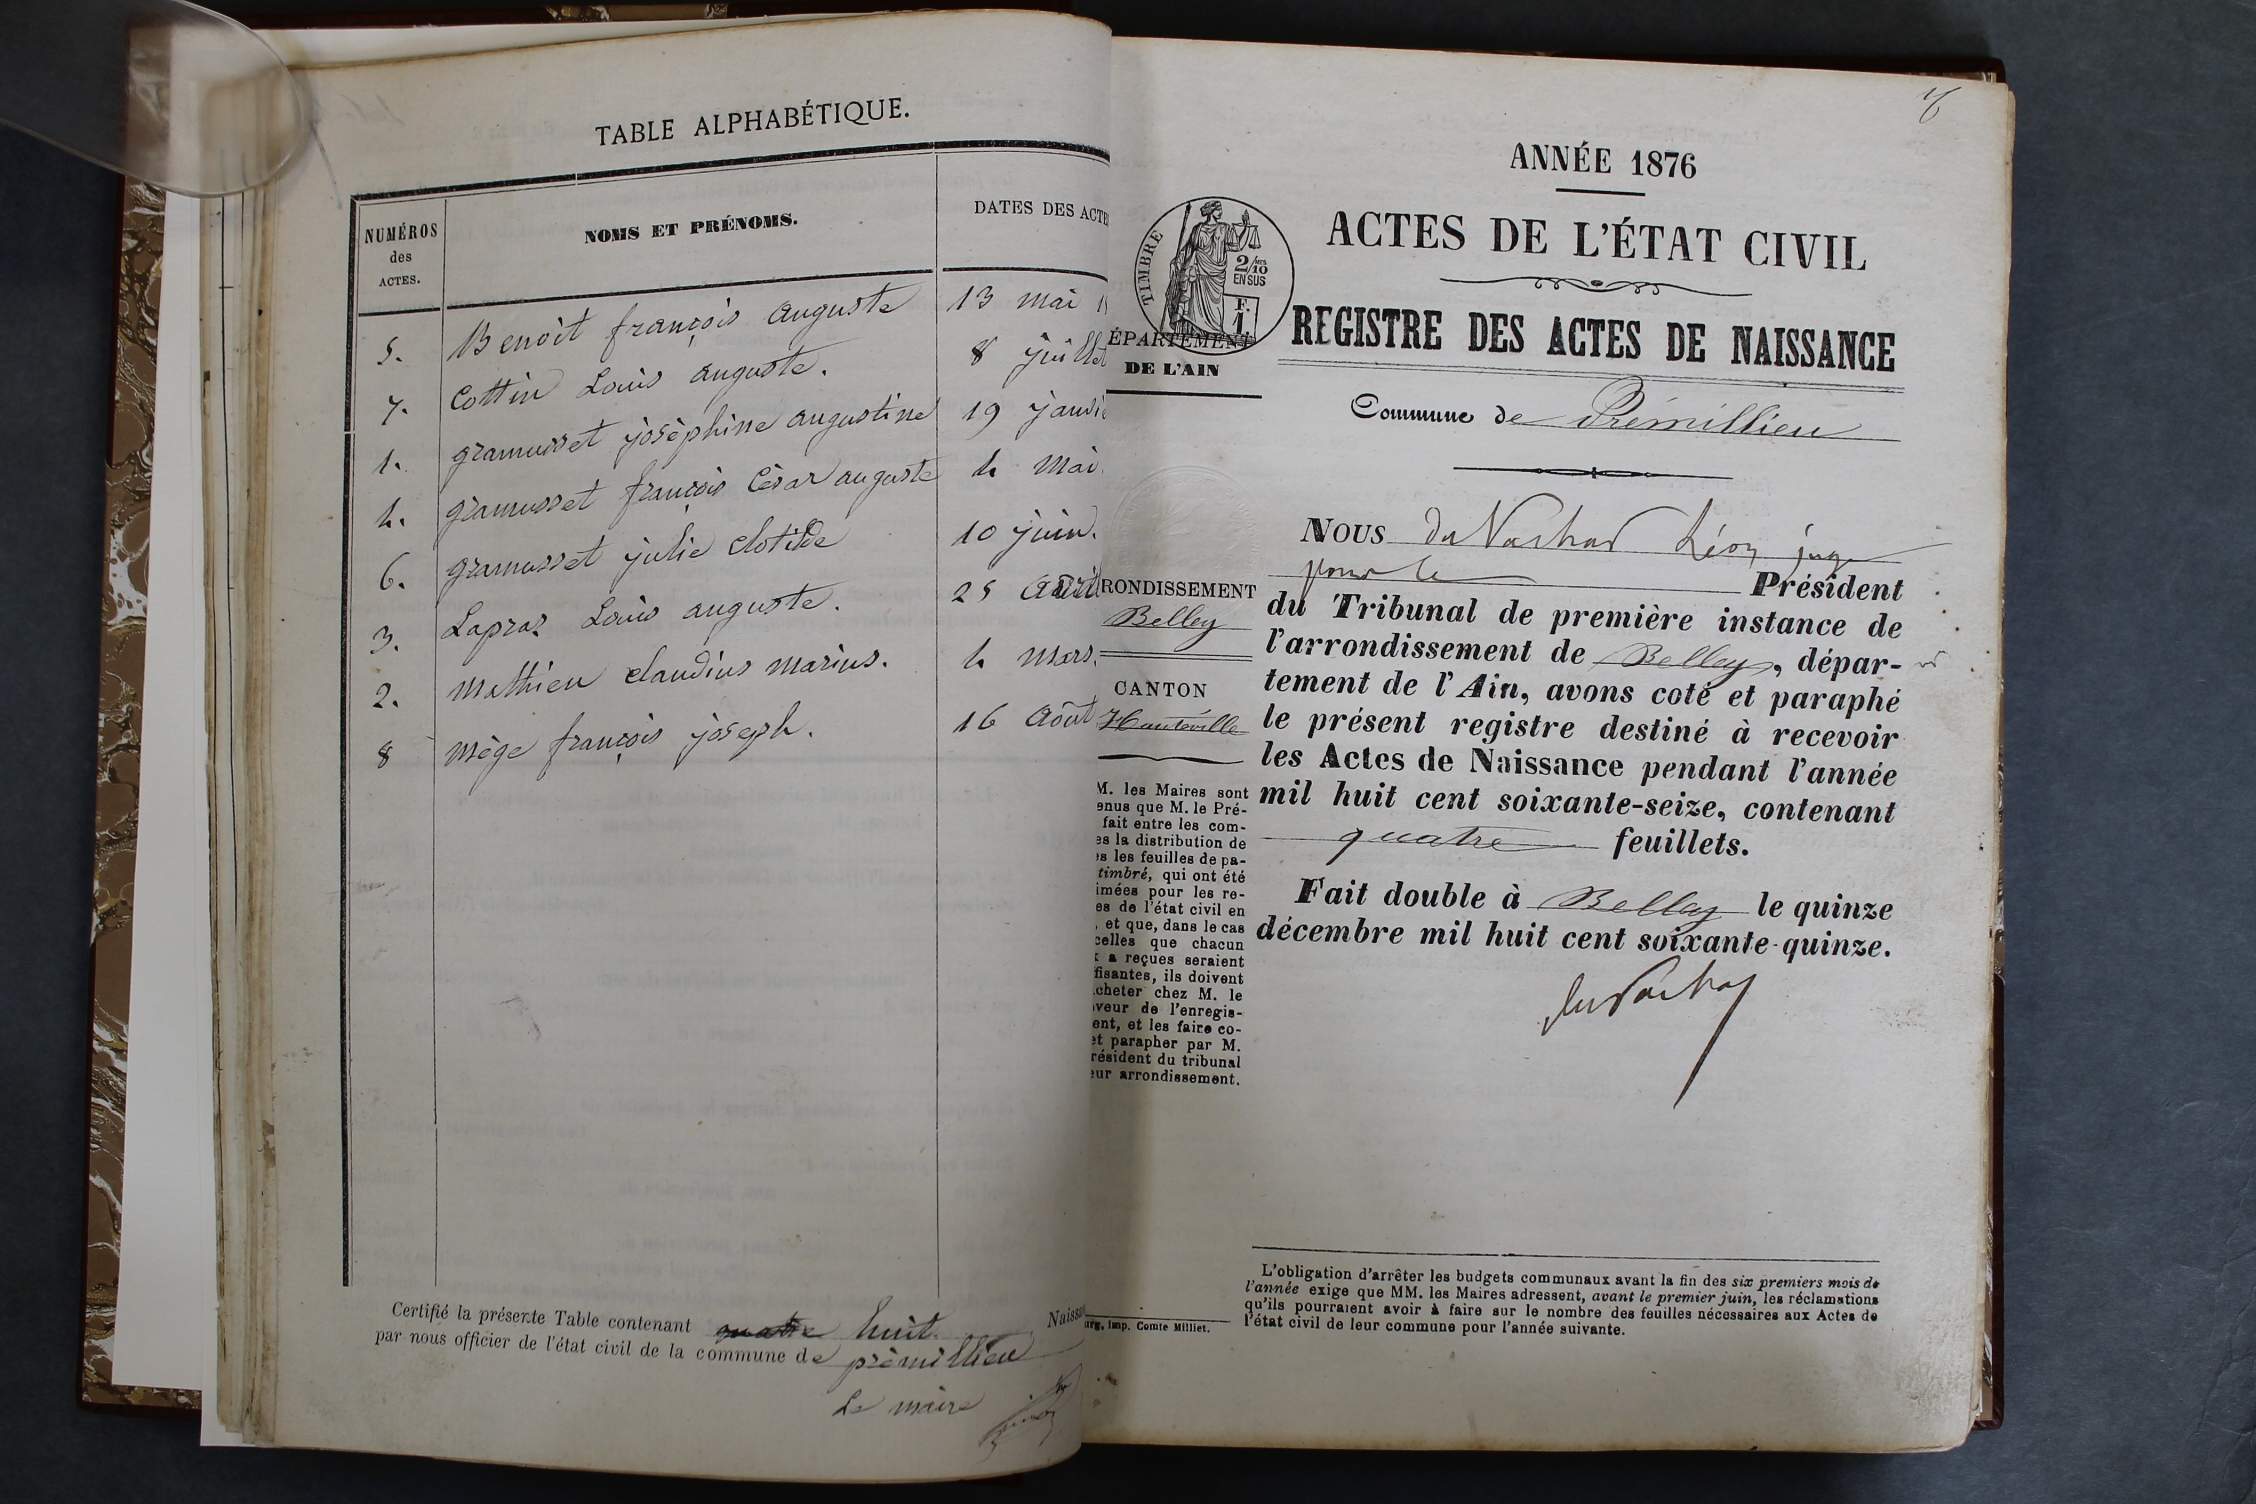 TABLE ALPHABÉTIQUE.
NUMÉROS
des
ACTES.
NOMS ET PRÉNOMS.
DATES DES ACTE
5. Benoit françois auguste 13 mai
7. Cottin Louis auguste. 8 juillet
1. gramusset josèphine augustine 19 janvie
4. gramusset françois Cèsar auguste 4 mai.
6. gramusset julie clotilde 10 juin.
3. Lapraz Louis auguste. 25 avril
2. Mathieu claudius marius. 4 mars.
8 mège françois joseph. 16 août
Certifié la présente Table contenant quatre huit.
par nous officier de l'état civil de la commune de prèmillieu
Le maire
Naissa
ANNÉE 1876
ACTES DE L'ÉTAT CIVIL
REGISTRE DES ACTES DE NAISSANCE
Commune de Prémillieu
TIMBRE
2/10
EN SUS
F.
1.
ÉPARTEMENT
DE L'AIN
RONDISSEMENT
Belley
CANTON
Hauteville
M. les Maires sont
enus que M. le Pré-
fait entre les com-
es la distribution de
s les feuilles de pa-
timbré, qui ont été
imées pour les re-
es de l'état civil en
, et que, dans le cas
celles que chacun
x a reçues seraient
fisantes, ils doivent
cheter chez M. le
veur de l'enregis-
ent, et les faire co-
et parapher par M.
résident du tribunal
eur arrondissement.
urg, Imp. Comte Milliet.
NOUS Léon juge
pour le Président
du Tribunal de première instance de
l'arrondissement de Belley, dépar-
tement de l'Ain, avons coté et paraphé
le présent registre destiné à recevoir
les Actes de Naissance pendant l'année
mil huit cent soixante-seize, contenant
quatre feuillets.
Fait double à Belley le quinze
décembre mil huit cent soixante-quinze.
L'obligation d'arrêter les budgets communaux avant la fin des six premiers mois de
l'année exige que MM. les Maires adressent, avant le premier juin, les réclamations
qu'ils pourraient avoir à faire sur le nombre des feuilles nécessaires aux Actes de
l'état civil de leur commune pour l'année suivante.